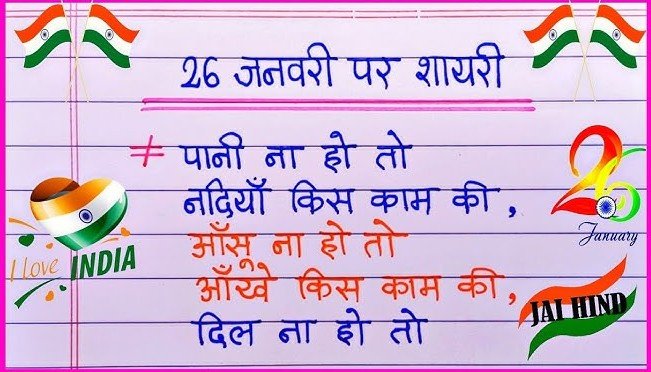 26 जनवरी पर शायरी
पानी ना हो तो
नदियाँ किस काम की ,
आँसू ना हो तो
आँखे किस काम की ,
दिल ना हो तो
I love INDIA
26
January
JAI HIND